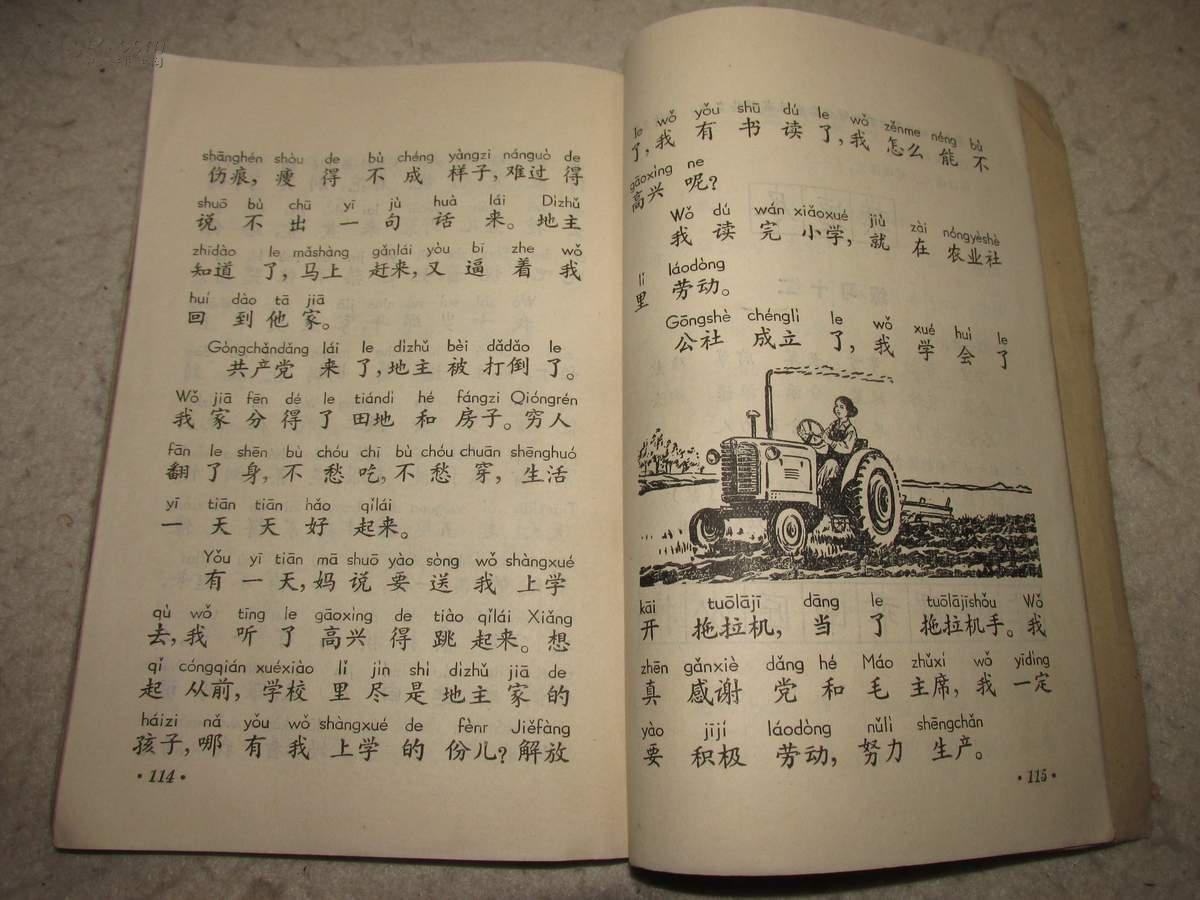 shānghén shòu de bù chéng yàngzi nánguò de
伤痕，瘦得不成样子，难过得
shuō bù chū yī jù huà lái Dìzhǔ
说不出一句话来。地主
zhīdào le mǎshàng gǎnlái yòu bī zhe wǒ
知道了，马上赶来，又逼着我
huí dào tā jiā
回到他家。
Gòngchǎndǎng lái le dìzhǔ bèi dǎdǎo le
共产党来了，地主被打倒了。
Wǒ jiā fēn dé le tiándì hé fángzi Qióngrén
我家分得了田地和房子。穷人
fān le shēn bù chóu chī bù chóu chuān shēnghuó
翻了身，不愁吃，不愁穿，生活
yī tiān tiān hǎo qǐlái
一天天好起来。
Yǒu yī tiān mā shuō yào sòng wǒ shàngxué
有一天，妈说要送我上学
qù wǒ tīng le gāoxìng de tiào qǐlái Xiǎng
去，我听了高兴得跳起来。想
qǐ cóngqián xuéxiào lǐ jìn shì dìzhǔ jiā de
起从前，学校里尽是地主家的
háizi nǎ yǒu wǒ shàngxué de fènr Jiěfàng
孩子，哪有我上学的份儿？解放
·114·
le wǒ yǒu shū dú le wǒ zěnme néng bù
了，我有书读了，我怎么能不
gāoxìng ne
高兴呢？
Wǒ dú wán xiǎoxué jiù zài nóngyèshè
我读完小学，就在农业社
lǐ láodòng
里劳动。
Gōngshè chénglì le wǒ xué huì le
公社成立了，我学会了
kāi tuōlājī dāng le tuōlājīshǒu Wǒ
开拖拉机，当了拖拉机手。我
zhēn gǎnxiè dǎng hé Máo zhǔxí wǒ yīdìng
真感谢党和毛主席，我一定
yào jījí láodòng nǔlì shēngchǎn
要积极劳动，努力生产。
·115·